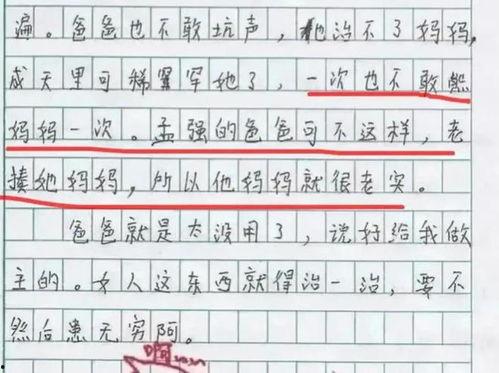 遍。爸爸也不敢坑声，他治不了妈妈，
成天里可稀罕她了，一次也不敢熊
妈妈一次。孟强的爸爸可不这样，老
揍她妈妈，所以他妈妈就很老实。
爸爸就是太没用了，说好给我做
主的。女人这东西就得治一治，要不
然后患无穷阿。
啊